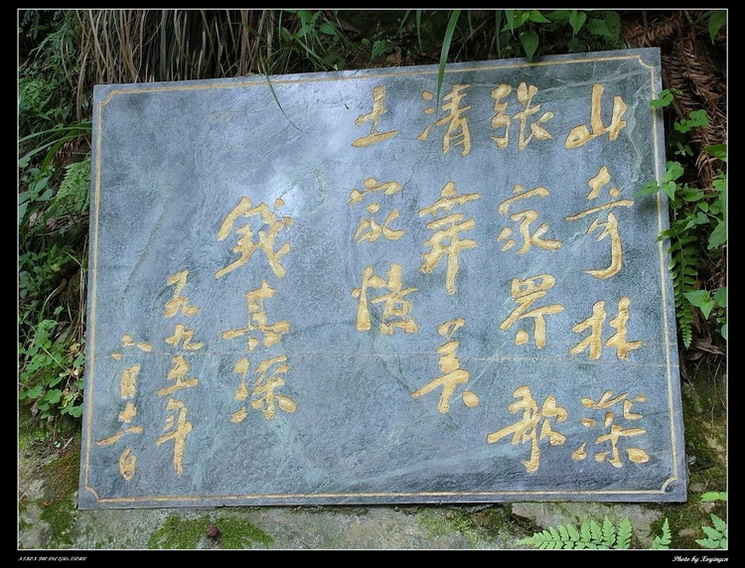 山奇林深
张家界歌
清舞美
土家情
钱其琛
一九九五年
Photo by Xuyingcn